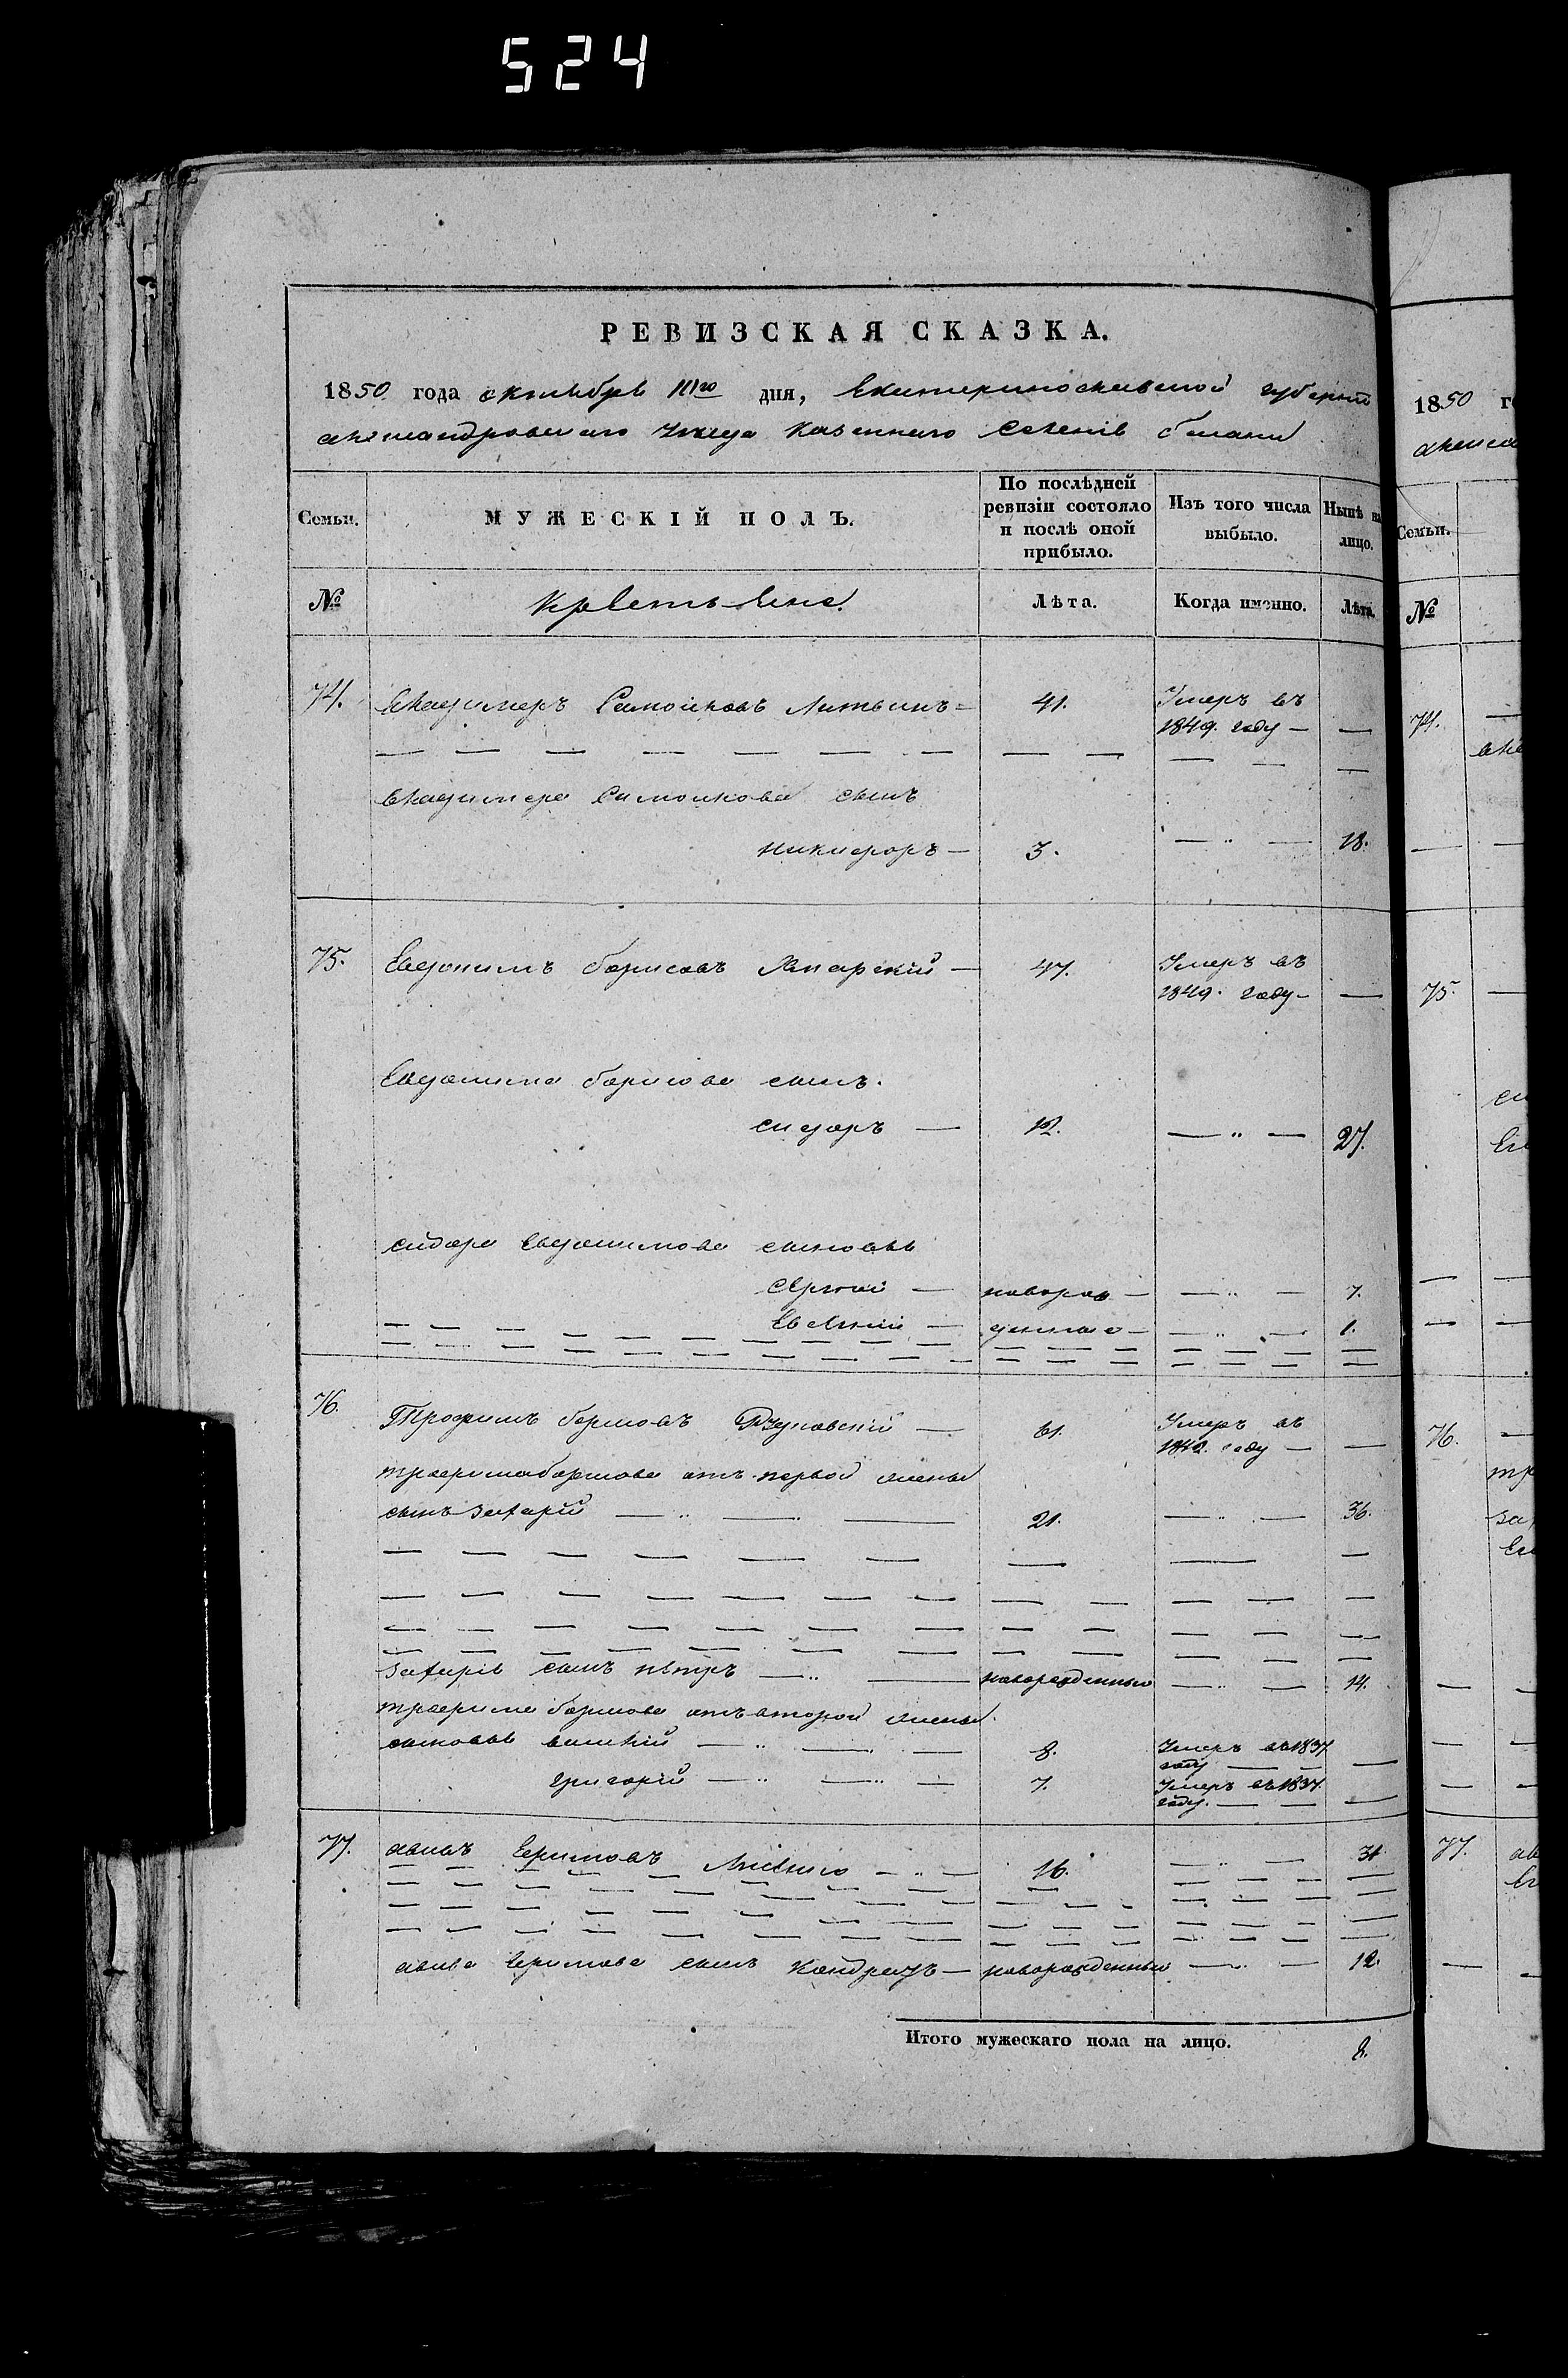 524
РЕВИЗСКАЯ СКАЗКА.
1850 года октября дня, Екатеринославской губернии
александровскаго уезда казеннаго селенія
Семьи.
МУЖЕСКІЙ ПОЛЪ.
По послѣдней ревизіи состояло и послѣ оной прибыло.
Изъ того числа выбыло.
Нынѣ на лицо.
№
Крестьяне.
Лѣта.
Когда именно.
Лѣта.
74. владимеръ Самойловъ Литвинъ 41. Умеръ въ
1849. году —
владимера Самойлова сынъ
никифоръ — 3. — " — 18.
75. Евдокимъ борисовъ — 47. Умеръ въ
1849. году —
Евдокима борисова сынъ.
сидоръ — 12. — " — 27.
сидора Евдокимова сыновья
Сергий — новорож — " — 7.
Евсѣний — денные — " — 1.
76. Трофимъ борисовъ — 61. Умеръ въ
году —
трофима борисова отъ первой жены
сынъ захарій — " — " — 21. — " — 36.
захарія сынъ пётръ — " — новорожденный — " — 14.
трофима борисова отъ второй жены
сыновья василій — " — " — 8. Умеръ въ 1837
году —
григорій — " — " — 7. Умеръ въ 1837.
году. —
77. Ефимовъ — " — 16. — " — 31
Ефимова сынъ кондратъ — новорожденный — " — 12.
Итого мужескаго пола на лицо. 8.
1850
Семьи.
№
74.
75.
76.
77.